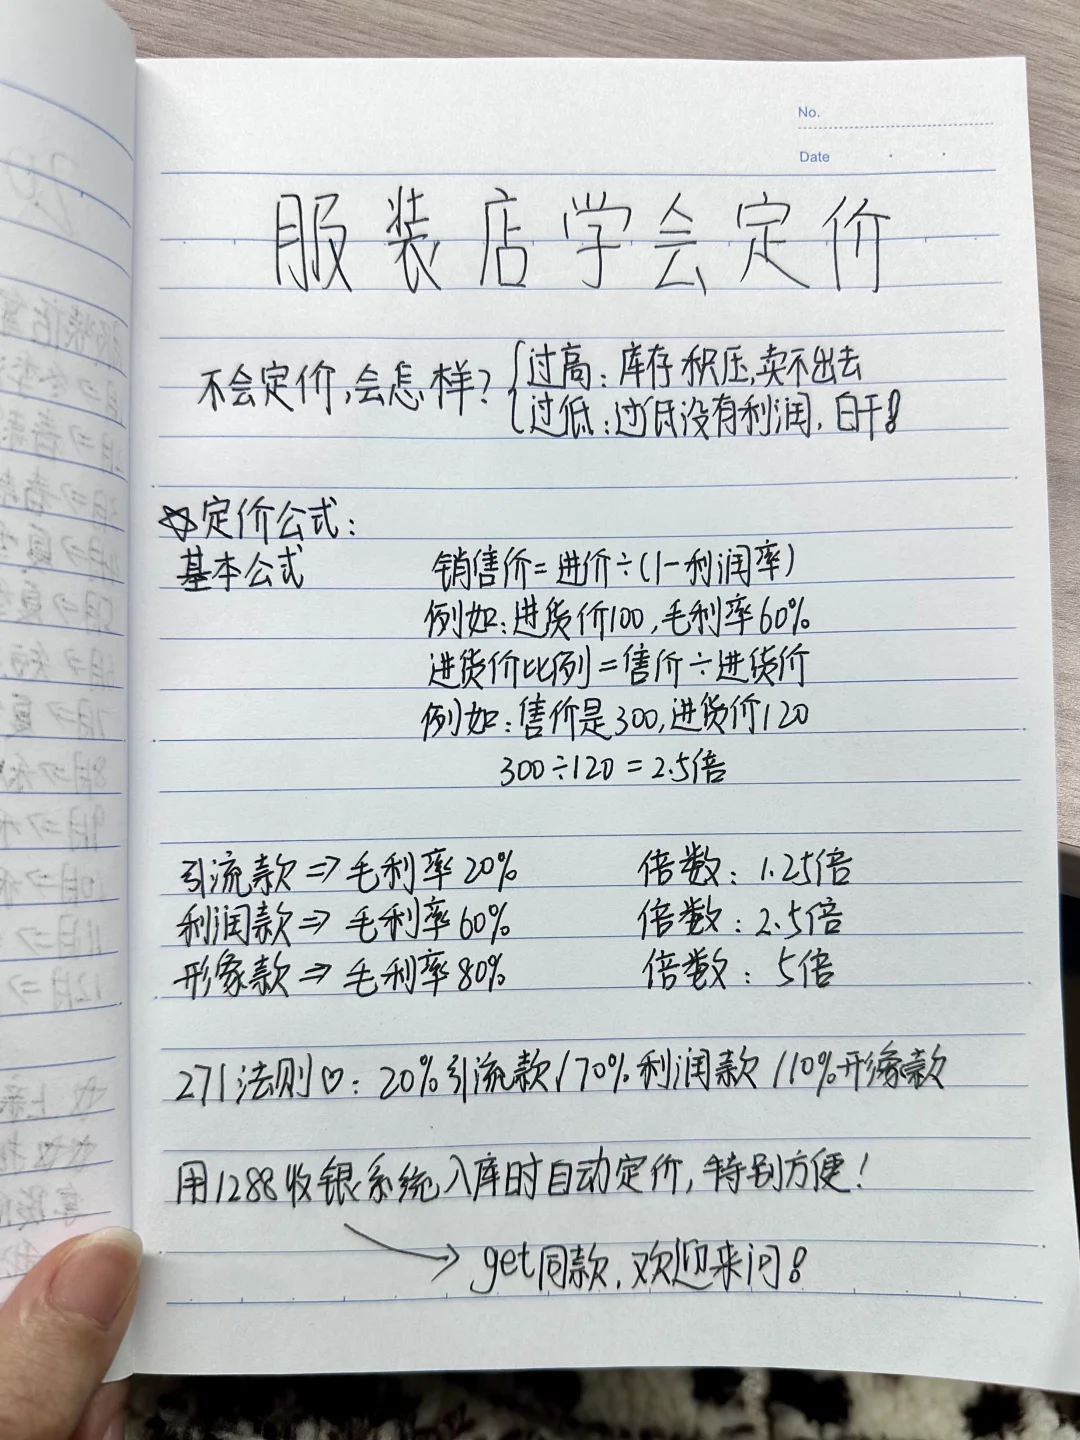 No.
Date
服装店学会定价
不会定价,会怎样? 过高: 库存积压,卖不出去
过低: 过低没有利润, 白干!
☆定价公式:
基本公式 销售价=进价÷(1-利润率)
例如: 进货价100,毛利率60%
进货价比例=售价÷进货价
例如: 售价是300,进货价120
300÷120=2.5倍
引流款⇒毛利率20% 倍数: 1.25倍
利润款⇒毛利率60% 倍数: 2.5倍
形象款⇒毛利率80% 倍数: 5倍
271法则♡: 20%引流款/70%利润款/10%形象款
用1288收银系统入库时自动定价,特别方便!
→get同款,欢迎来问!